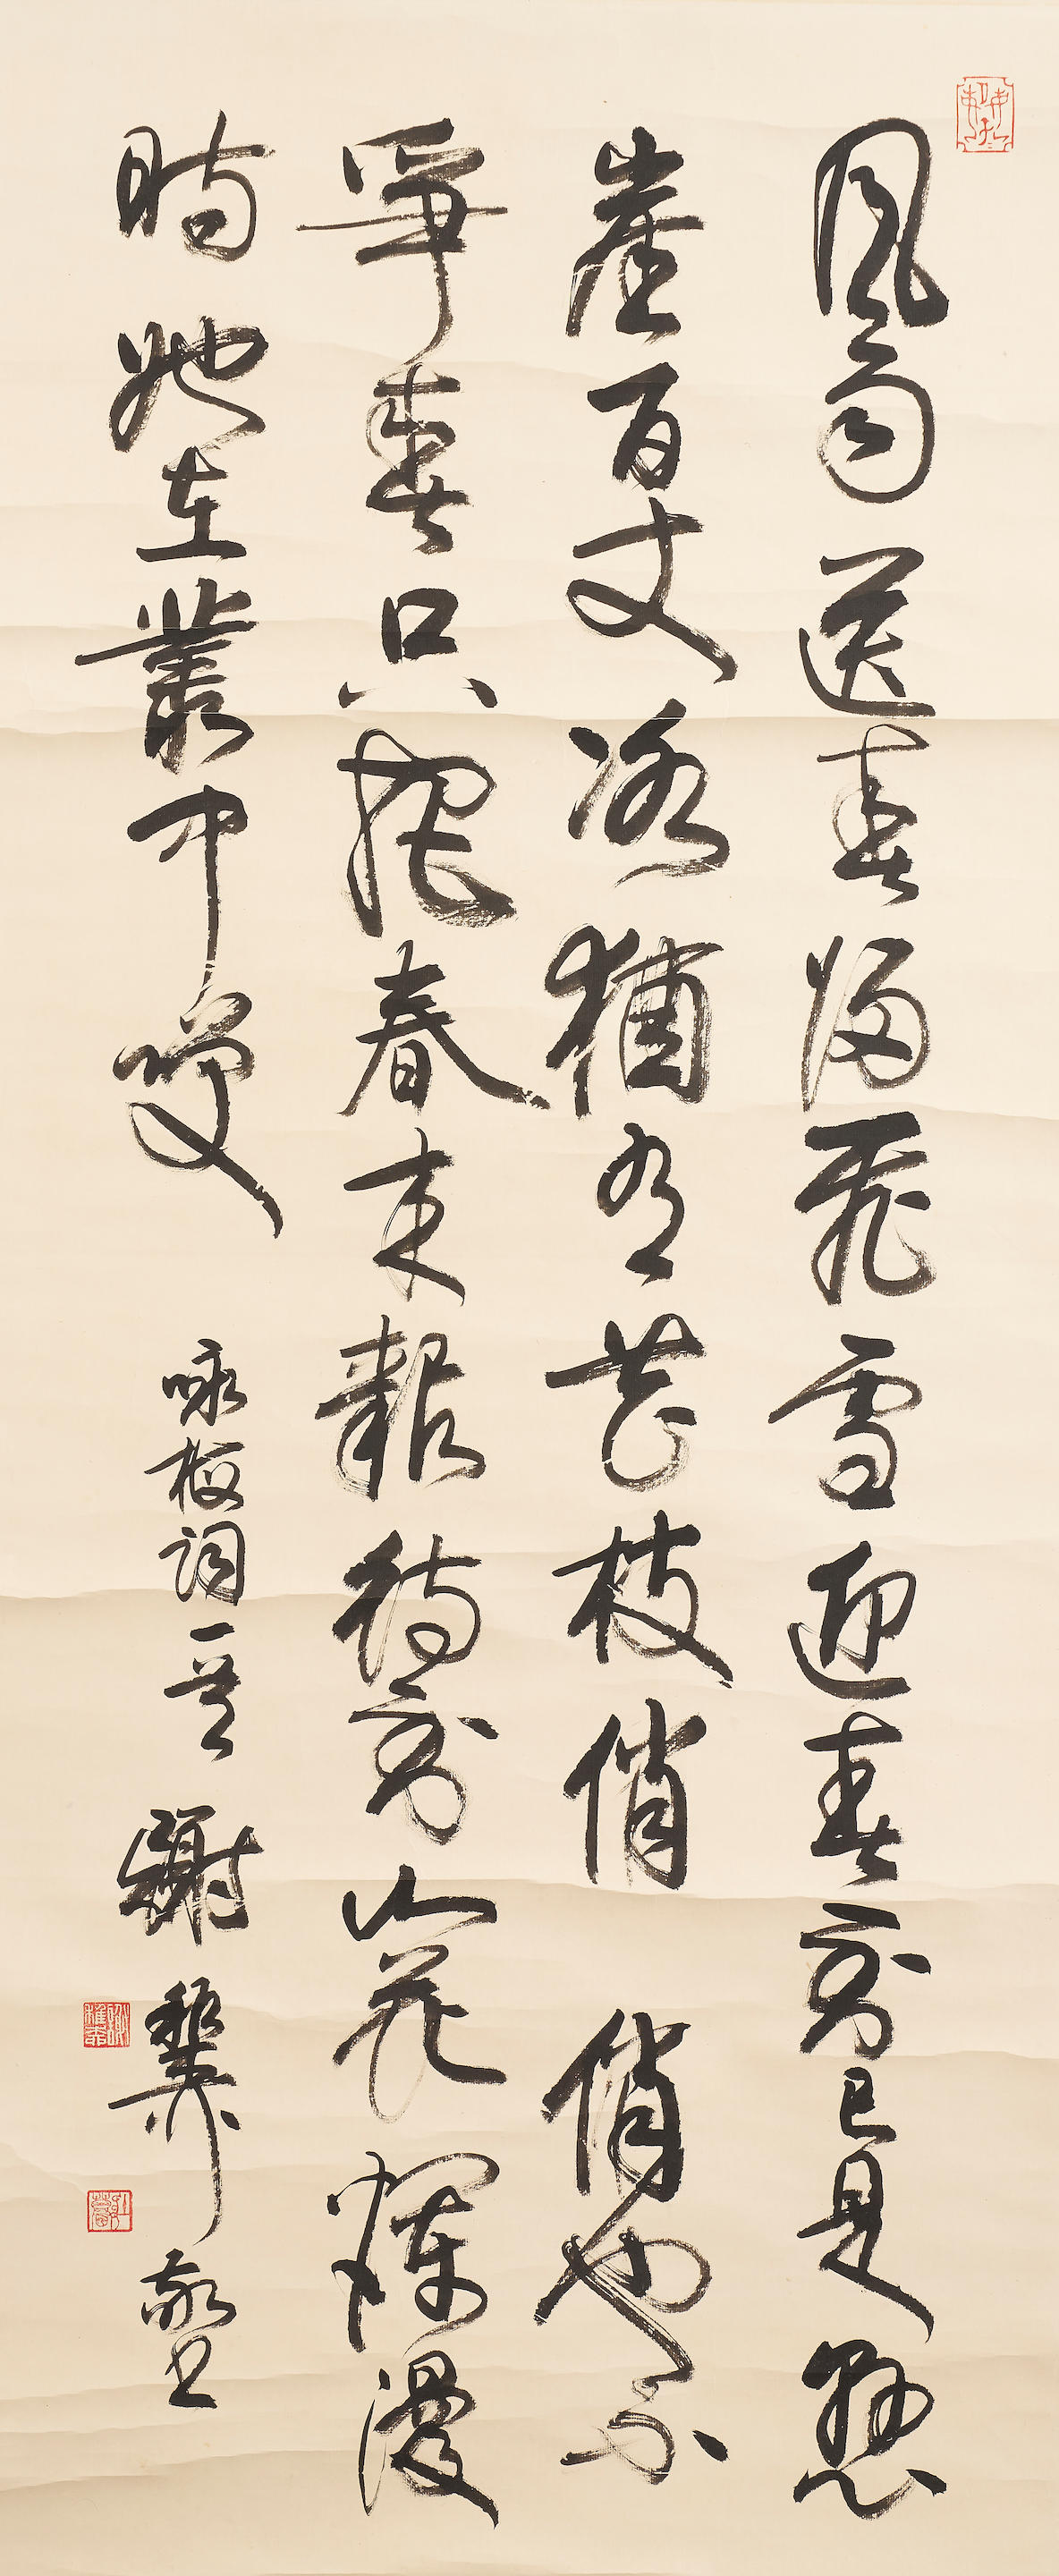 風雨送春歸飛雪迎春到已是懸
崖百丈冰猶有花枝俏 俏也不
爭春只把春來報待到山花爛漫
時她在叢中笑 咏梅詞一首 謝稚柳敬書